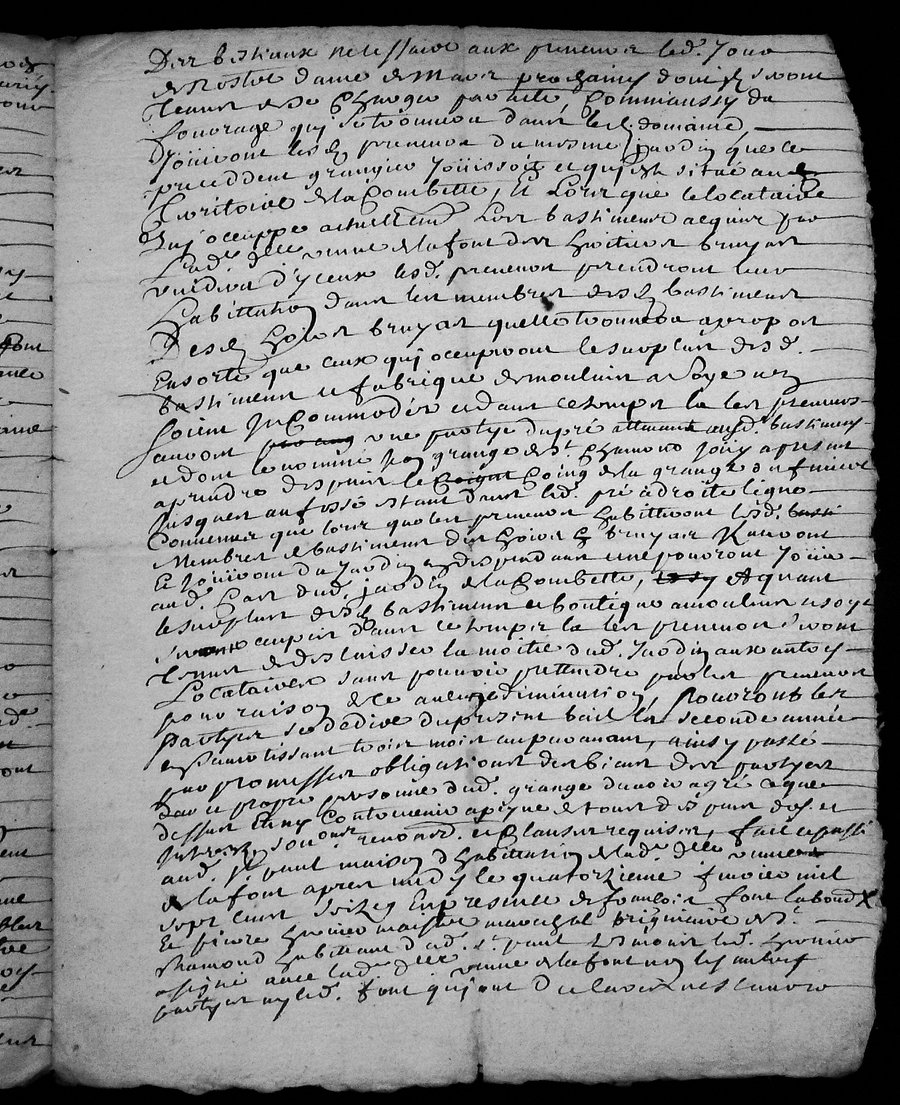 Des bestiaux nessessaire aux preneurs led. jour
de Nostre dame de Mars prochains dont ils seront
tenus de se charger par acte, Comm'aussy du
fourage quj setrouvera dans led. domaine,
Joüiront lesd preneurs du mesme jardin que le
preceddent grangier joüissoit et quj est situé au
Territoire de la Combette, Et Lors que le locataire
quj occuppe actuellemt Les bastiments acquis par
Lad. dlle veuve de la font des hoirs bruyas
vuidera d'yceux lesd. preneurs prendront leur
habittation dans les membres desd bastiments
Desd. hoirs bruyas quelle trouvera apropos
Ensorte que ceux quj occuperont le surplus desd.
bastiments et fabrique de moulins a soye n'en
soient Incommodés et dans ce temps la les preneurs
auront une partye dupré attenant ausd. bastiments
et dont le nommé grange de St. Chamond jouis apresant
aprendre despuis le Coing de la grange
jusques au fossé estant dans led. pré a droite ligne
Convenu que lors que les preneurs habitteront lesd.
Membres et bastiments des hoirs bruyas
Et joüiront du Jardin en despendant ne pourront joüir
aud. Cas dud. jardin de la Combette, Et quant
le surplus desd. bastiments et boutique a moulins a soye
occuppés dans ce temps la les preneurs seront
tenus de deslaisser la moitié dud. Jardin aux autres
Locataires sans pouvoir prettendre par les preneurs
pour raison de ce aucune diminution, Pouront les
partyes se dédire du present bail la seconde année
en s'avertissant trois mois auparavant, ainsy passé
par promesses obligations des biens des partyes
de la propre personne dud. grange
dessus Et ny Contrevenir a peyne de tous despans dos. et
Intrests renond. et Clauses requises, fait et passé
aud. St. paul maison d'habittation de lad. dlle veuve
de la font apres midy le quatorzieme fevrier mil
sept cent seize En presence de françois font
Et pierre maistre marechal
Chamond habittant aud. St. paul led.
signé avec lad. dlle veuve de la font non les autres
partyes ny led. font quj ont declaré ne scavoir